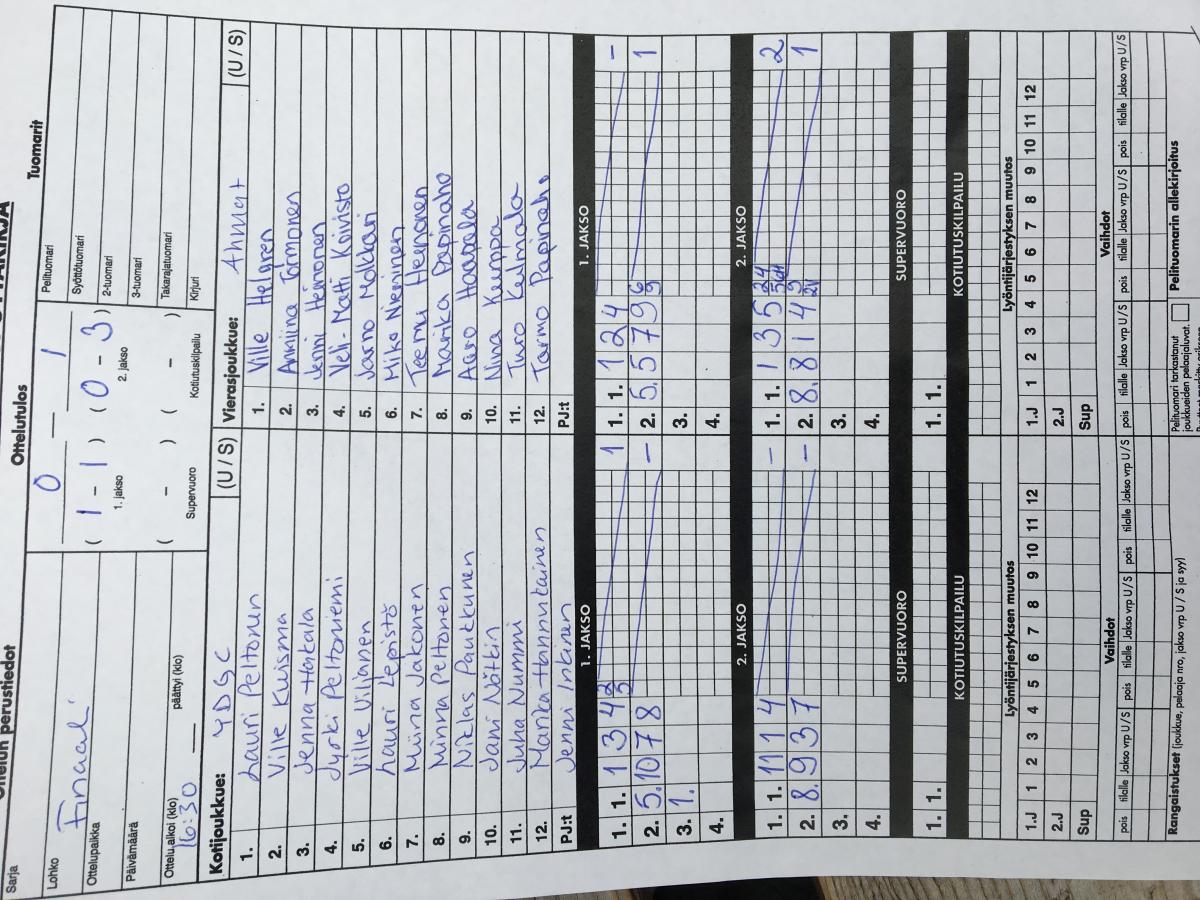 Ottelun perustiedot
Ottelutulos
Tuomarit
Sarja
Lohko
Finaali
Ottelupaikka
Päivämäärä
Ottelu alkoi (klo)
16:30
päättyi (klo)
0 – 1
( 1 – 1 ) ( 0 – 3 )
1. jakso 2. jakso
( – ) ( – )
Supervuoro Kotiutuskilpailu
Pelituomari
Syöttötuomari
2-tuomari
3-tuomari
Takarajatuomari
Kirjuri
Kotijoukkue: YDGC (U / S)
1. Lauri Peltonen
2. Ville Kuisma
3. Jenna Hakala
4. Jyrki Peltoniemi
5. Ville Villanen
6. Lauri Lepistö
7. Minna Jakonen
8. Minna Peltonen
9. Niklas Paukkunen
10. Jani Nätkin
11. Juha Nummi
12. Marika Hannuntainen
PJ:t Jenni Inkinen
Vierasjoukkue: Ahmat (U / S)
1. Ville Helgren
2. Anniina Tormonen
3. Jenni Heinonen
4. Veli-Matti Koivisto
5. Jarno Molkkari
6. Miko Nieminen
7. Teemu Heinonen
8. Marika Papinaho
9. Aaro Haapala
10. Nina Kemppa
11. Turo Kulmala
12. Tarmo Papinaho
PJ:t
1. JAKSO
1. 1. 1 3 4 2 3 1
2. 5. 10 7 8 –
3. 1.
4.
1. JAKSO
1. 1. 1 2 4 –
2. 5. 5 7 9 6 9 1
3.
4.
2. JAKSO
1. 1. 11 1 4 –
2. 8. 9 3 7 –
3.
4.
2. JAKSO
1. 1. 1 3 5 2
2. 8. 8 1 4 1
3.
4.
SUPERVUORO
1. 1.
SUPERVUORO
1. 1.
KOTIUTUSKILPAILU
KOTIUTUSKILPAILU
Lyöntijärjestyksen muutos
1.J 1 2 3 4 5 6 7 8 9 10 11 12
2.J
Sup
Lyöntijärjestyksen muutos
1.J 1 2 3 4 5 6 7 8 9 10 11 12
2.J
Sup
Vaihdot
pois tilalle Jakso vrp U / S pois tilalle Jakso vrp U / S pois tilalle Jakso vrp U / S
Vaihdot
pois tilalle Jakso vrp U / S pois tilalle Jakso vrp U / S pois tilalle Jakso vrp U / S
Rangaistukset (joukkue, pelaaja nro, jakso vrp U / S ja syy)
Pelituomari tarkastanut
joukkueiden pelaajaluvat.
Pelituomarin allekirjoitus